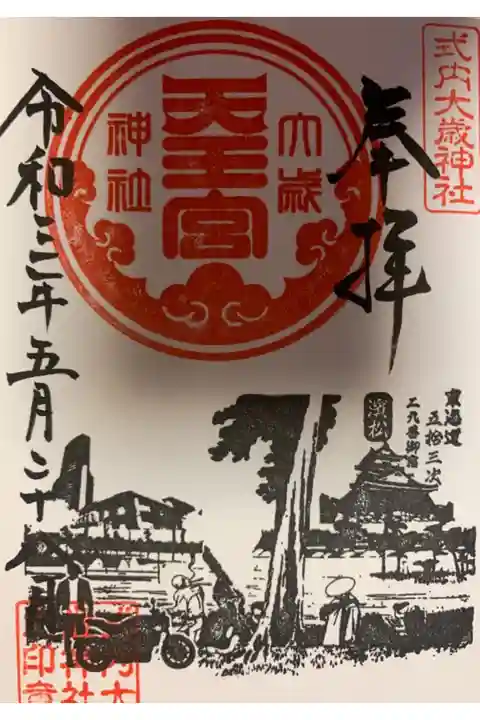 式内大歳神社
奉拝
大歳
天王宮
神社
東海道
五拾三次
二九番御宿
濱松
令和三年五月二十八日